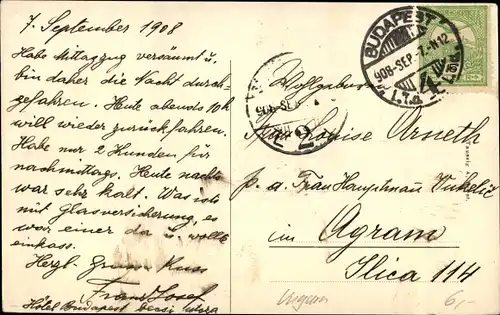 7. September 1908
Habe Mittagzug versäumt u.
bin daher die Nacht durch-
gefahren. Heute abends 10h
will wieder zurückfahren.
Habe nur 2 Kunden für
nachmittags. Heute nachts
war sehr kalt. Was ists
mit Glasversicherung, es
war einer da u. wollte
einkass.
Herzl. Kuss
Franz Josef
Hôtel Budapest
BUDAPEST
908-SEP.-7-N12
2
Wohlgeboren
Frau Louise Arneth
p. a. Frau Hauptmann Vukelić
in Agram
Ilica 114
Ungarn
6,-